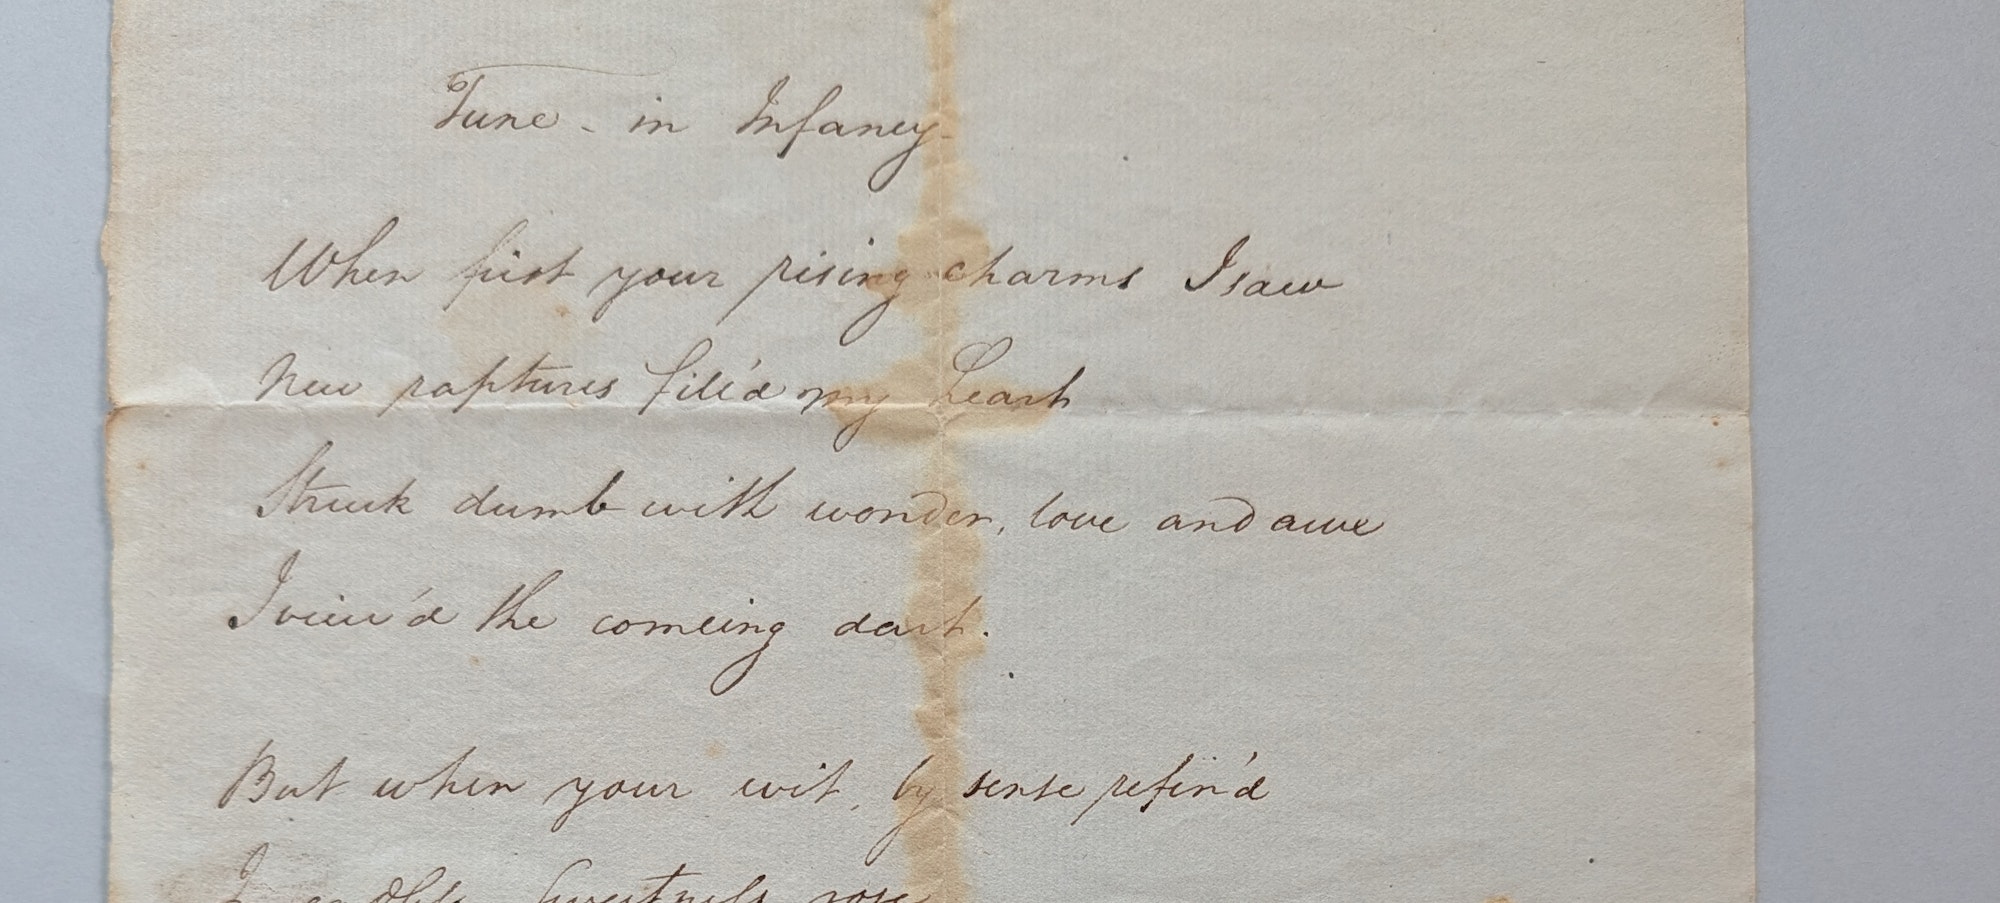 Tune - in Infancy -
When first your rising charms I saw
New raptures fill'd my heart
Struck dumb with wonder, love and awe
I view'd the comeing dart.
But when your wit, by sense refin'd
In endless sweetness rose